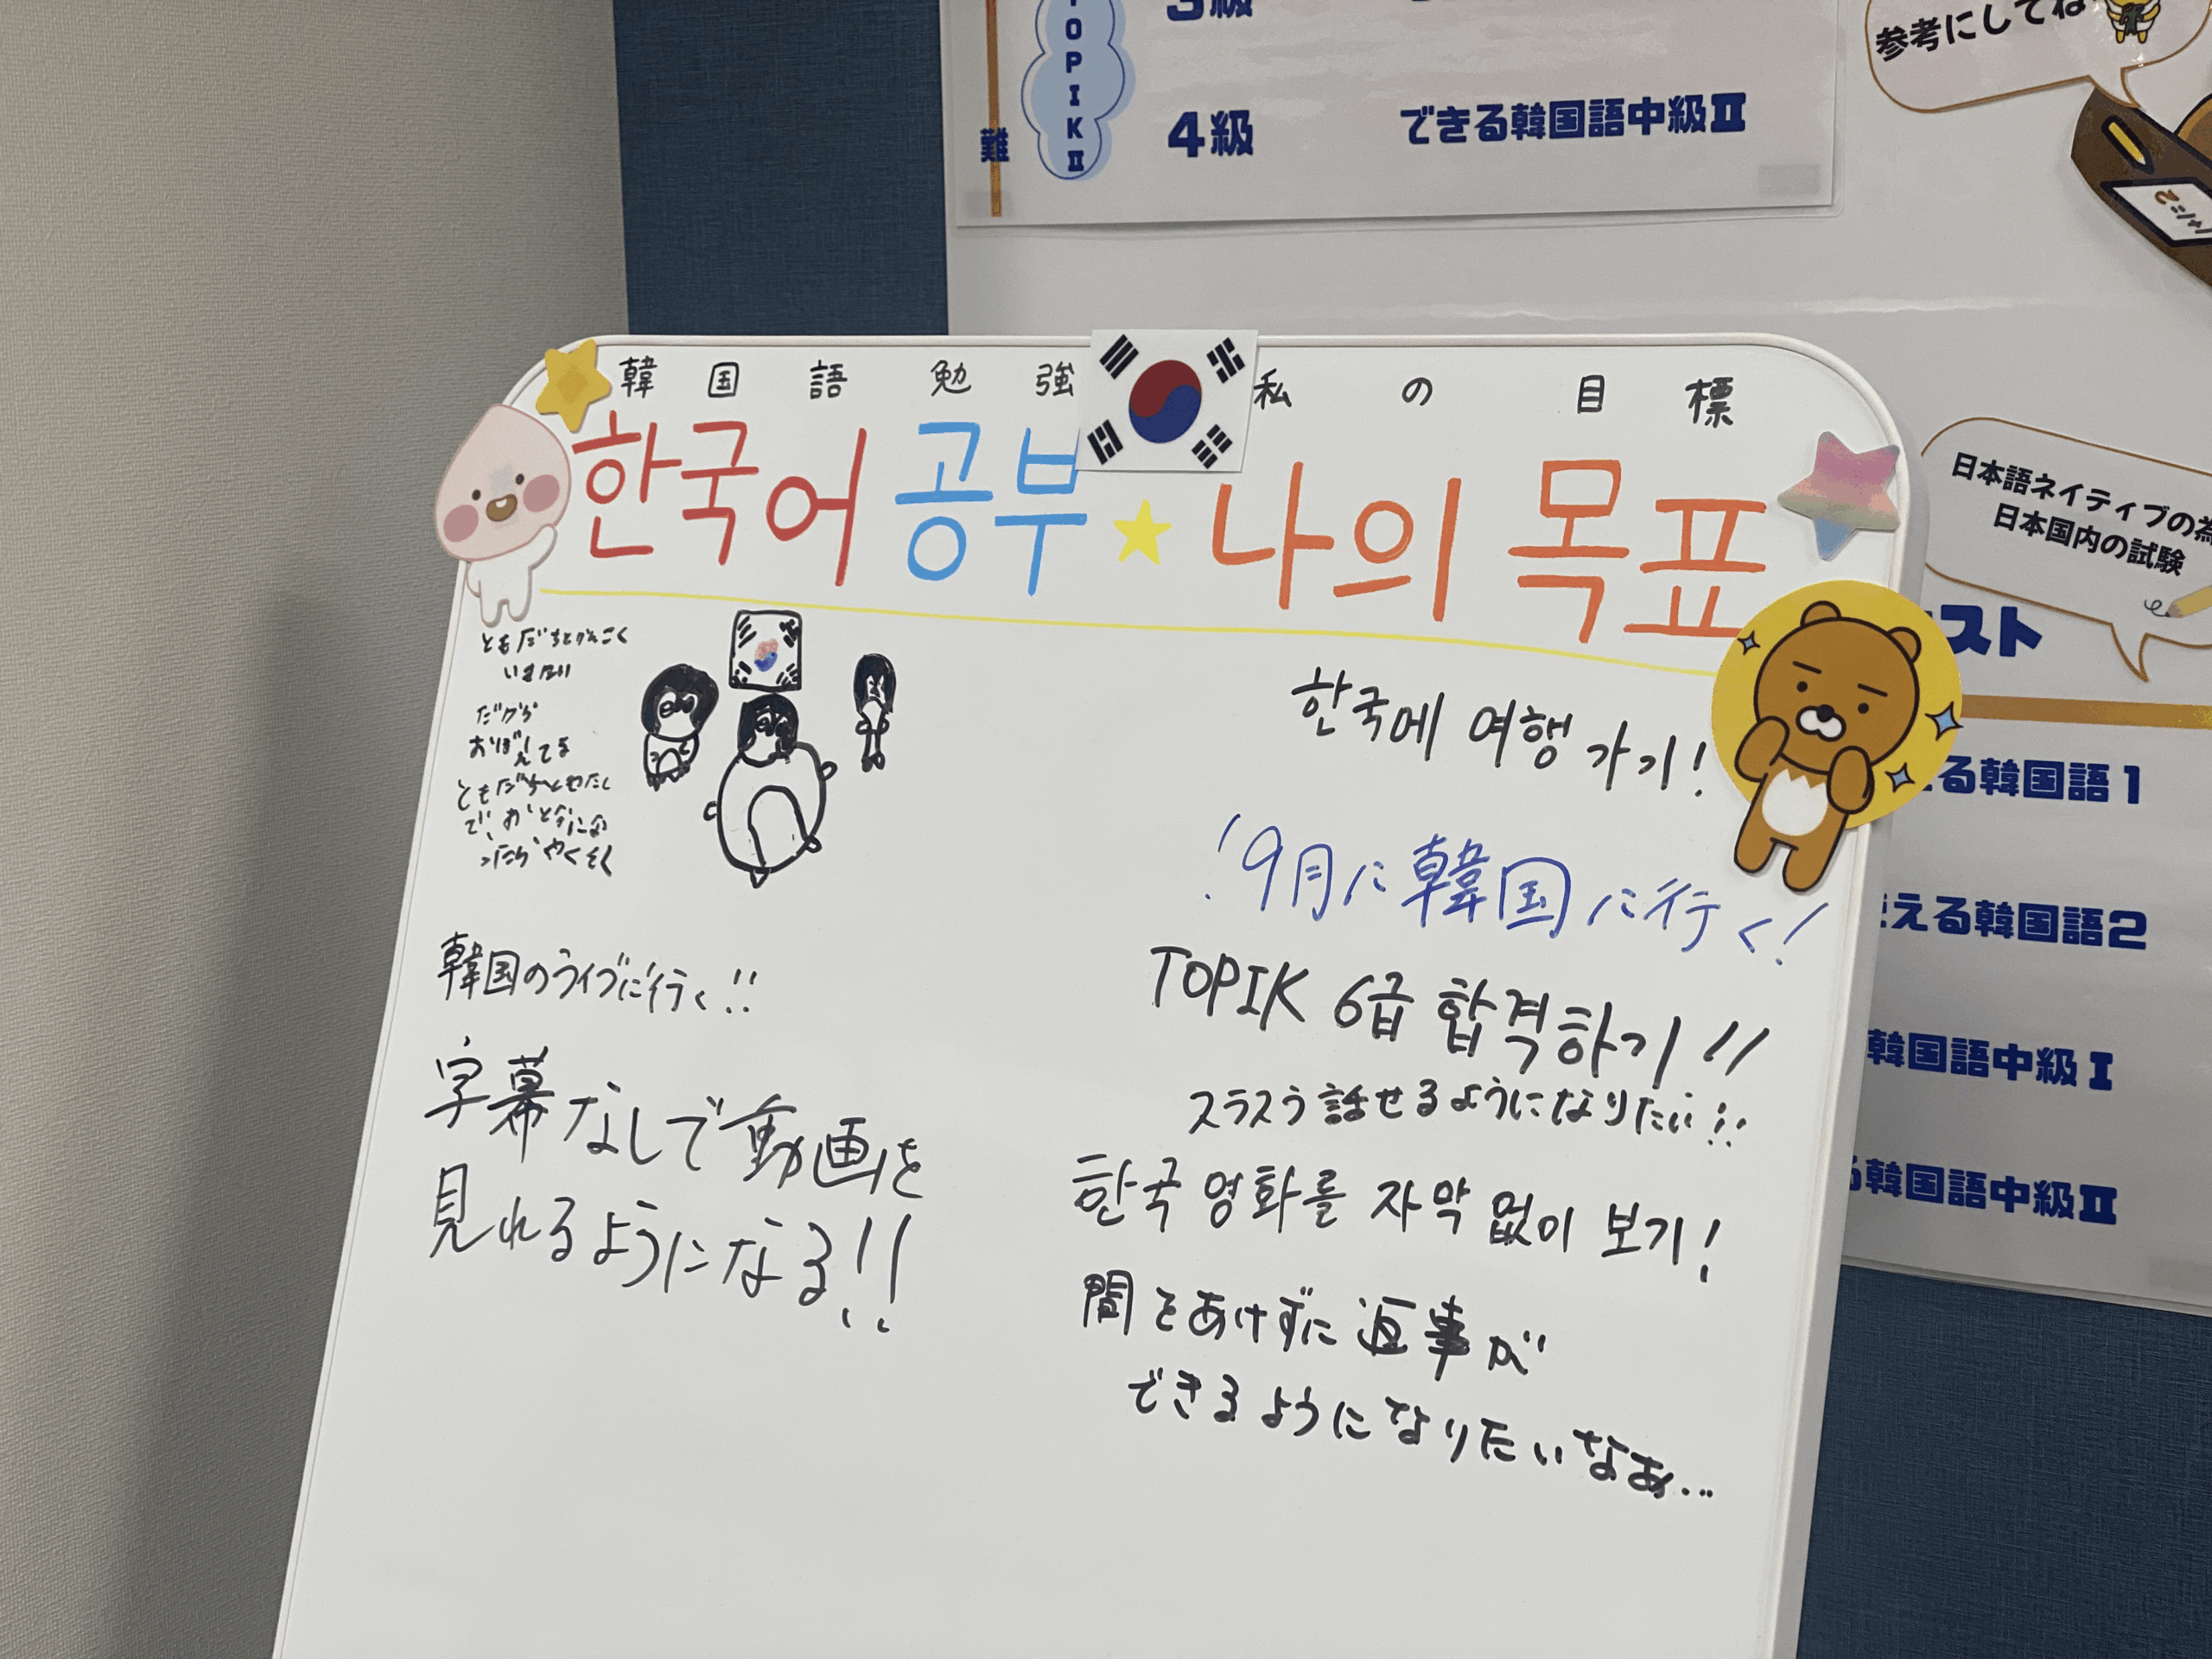 TOPIKⅡ
3級
難
4級
できる韓国語中級Ⅱ
参考にしてね
日本語ネイティブの為
日本国内の試験
スト
る韓国語1
える韓国語2
韓国語中級Ⅰ
る韓国語中級Ⅱ
韓国語勉強 私の目標
한국어 공부 나의 목표
ともだちとかんこく
いきたい
だから
おぼえてる
ともだちとわたし
で、おとなになっ
たら やくそく
韓国のライブに行く!!
字幕なしで動画を
見れるようになる!!
한국에 여행 가기!
9月に韓国に行く!
TOPIK 6급 합격하기!!
スラスラ話せるようになりたい!!
한국 영화를 자막 없이 보기!
間をあけずに返事が
できるようになりたいなぁ...